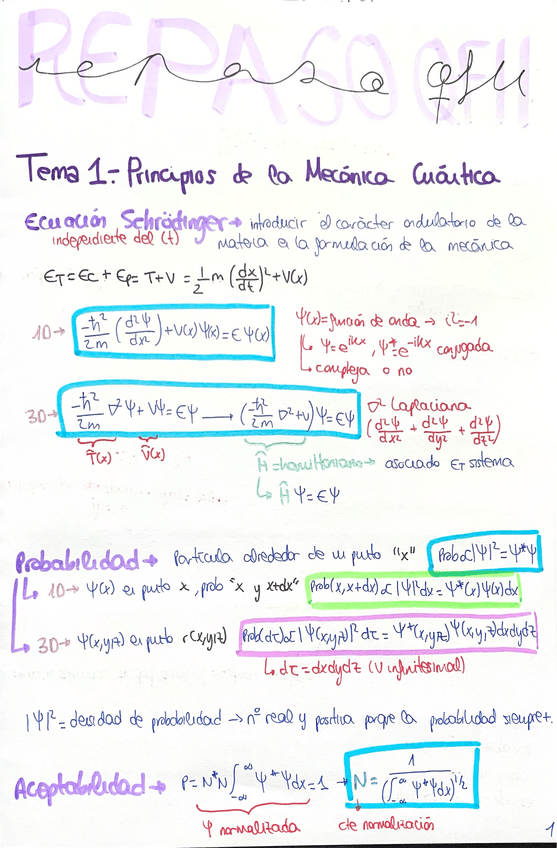 REPASO QFII
repaso QFII
Tema 1.- Principios de la Mecánica Cuántica
Ecuación Schrödinger → introducir el carácter ondulatorio de la
independiente del (t) materia en la formulación de la mecánica
ET = Ec + Ep = T + V = 1/2 m (dx/dt)² + V(x)
1D → -ħ²/2m (d²Ψ/dx²) + V(x)Ψ(x) = EΨ(x)
Ψ(x) = función de onda → i² = -1
↳ Ψ = e^ikx, Ψ* = e^-ikx conjugada
↳ compleja o no
3D → -ħ²/2m ∇²Ψ + VΨ = EΨ → (-ħ²/2m ∇² + V)Ψ = EΨ
∇² Laplaciana
(d²Ψ/dx² + d²Ψ/dy² + d²Ψ/dz²)
T̂(x) V̂(x)
Ĥ = hamiltoniano → asociado ET sistema
↳ ĤΨ = EΨ
Probabilidad → Partícula alrededor de un punto "x" Prob ∝ |Ψ|² = Ψ*Ψ
↳ 1D → Ψ(x) en punto x, prob "x y x+dx" Prob(x, x+dx) ∝ |Ψ|²dx = Ψ*(x)Ψ(x)dx
↳ 3D → Ψ(x,y,z) en punto r(x,y,z) Prob(dτ) ∝ |Ψ(x,y,z)|² dτ = Ψ*(x,y,z)Ψ(x,y,z)dxdydz
↳ dτ = dxdydz (V infinitesimal)
|Ψ|² = densidad de probabilidad → nº real y positiva porque la probabilidad siempre +.
Aceptabilidad → P = N*N ∫_-∞^∞ Ψ*Ψdx = 1 → N = 1/(∫_-∞^∞ Ψ*Ψdx)^1/2
Ψ normalizada cte normalización
1